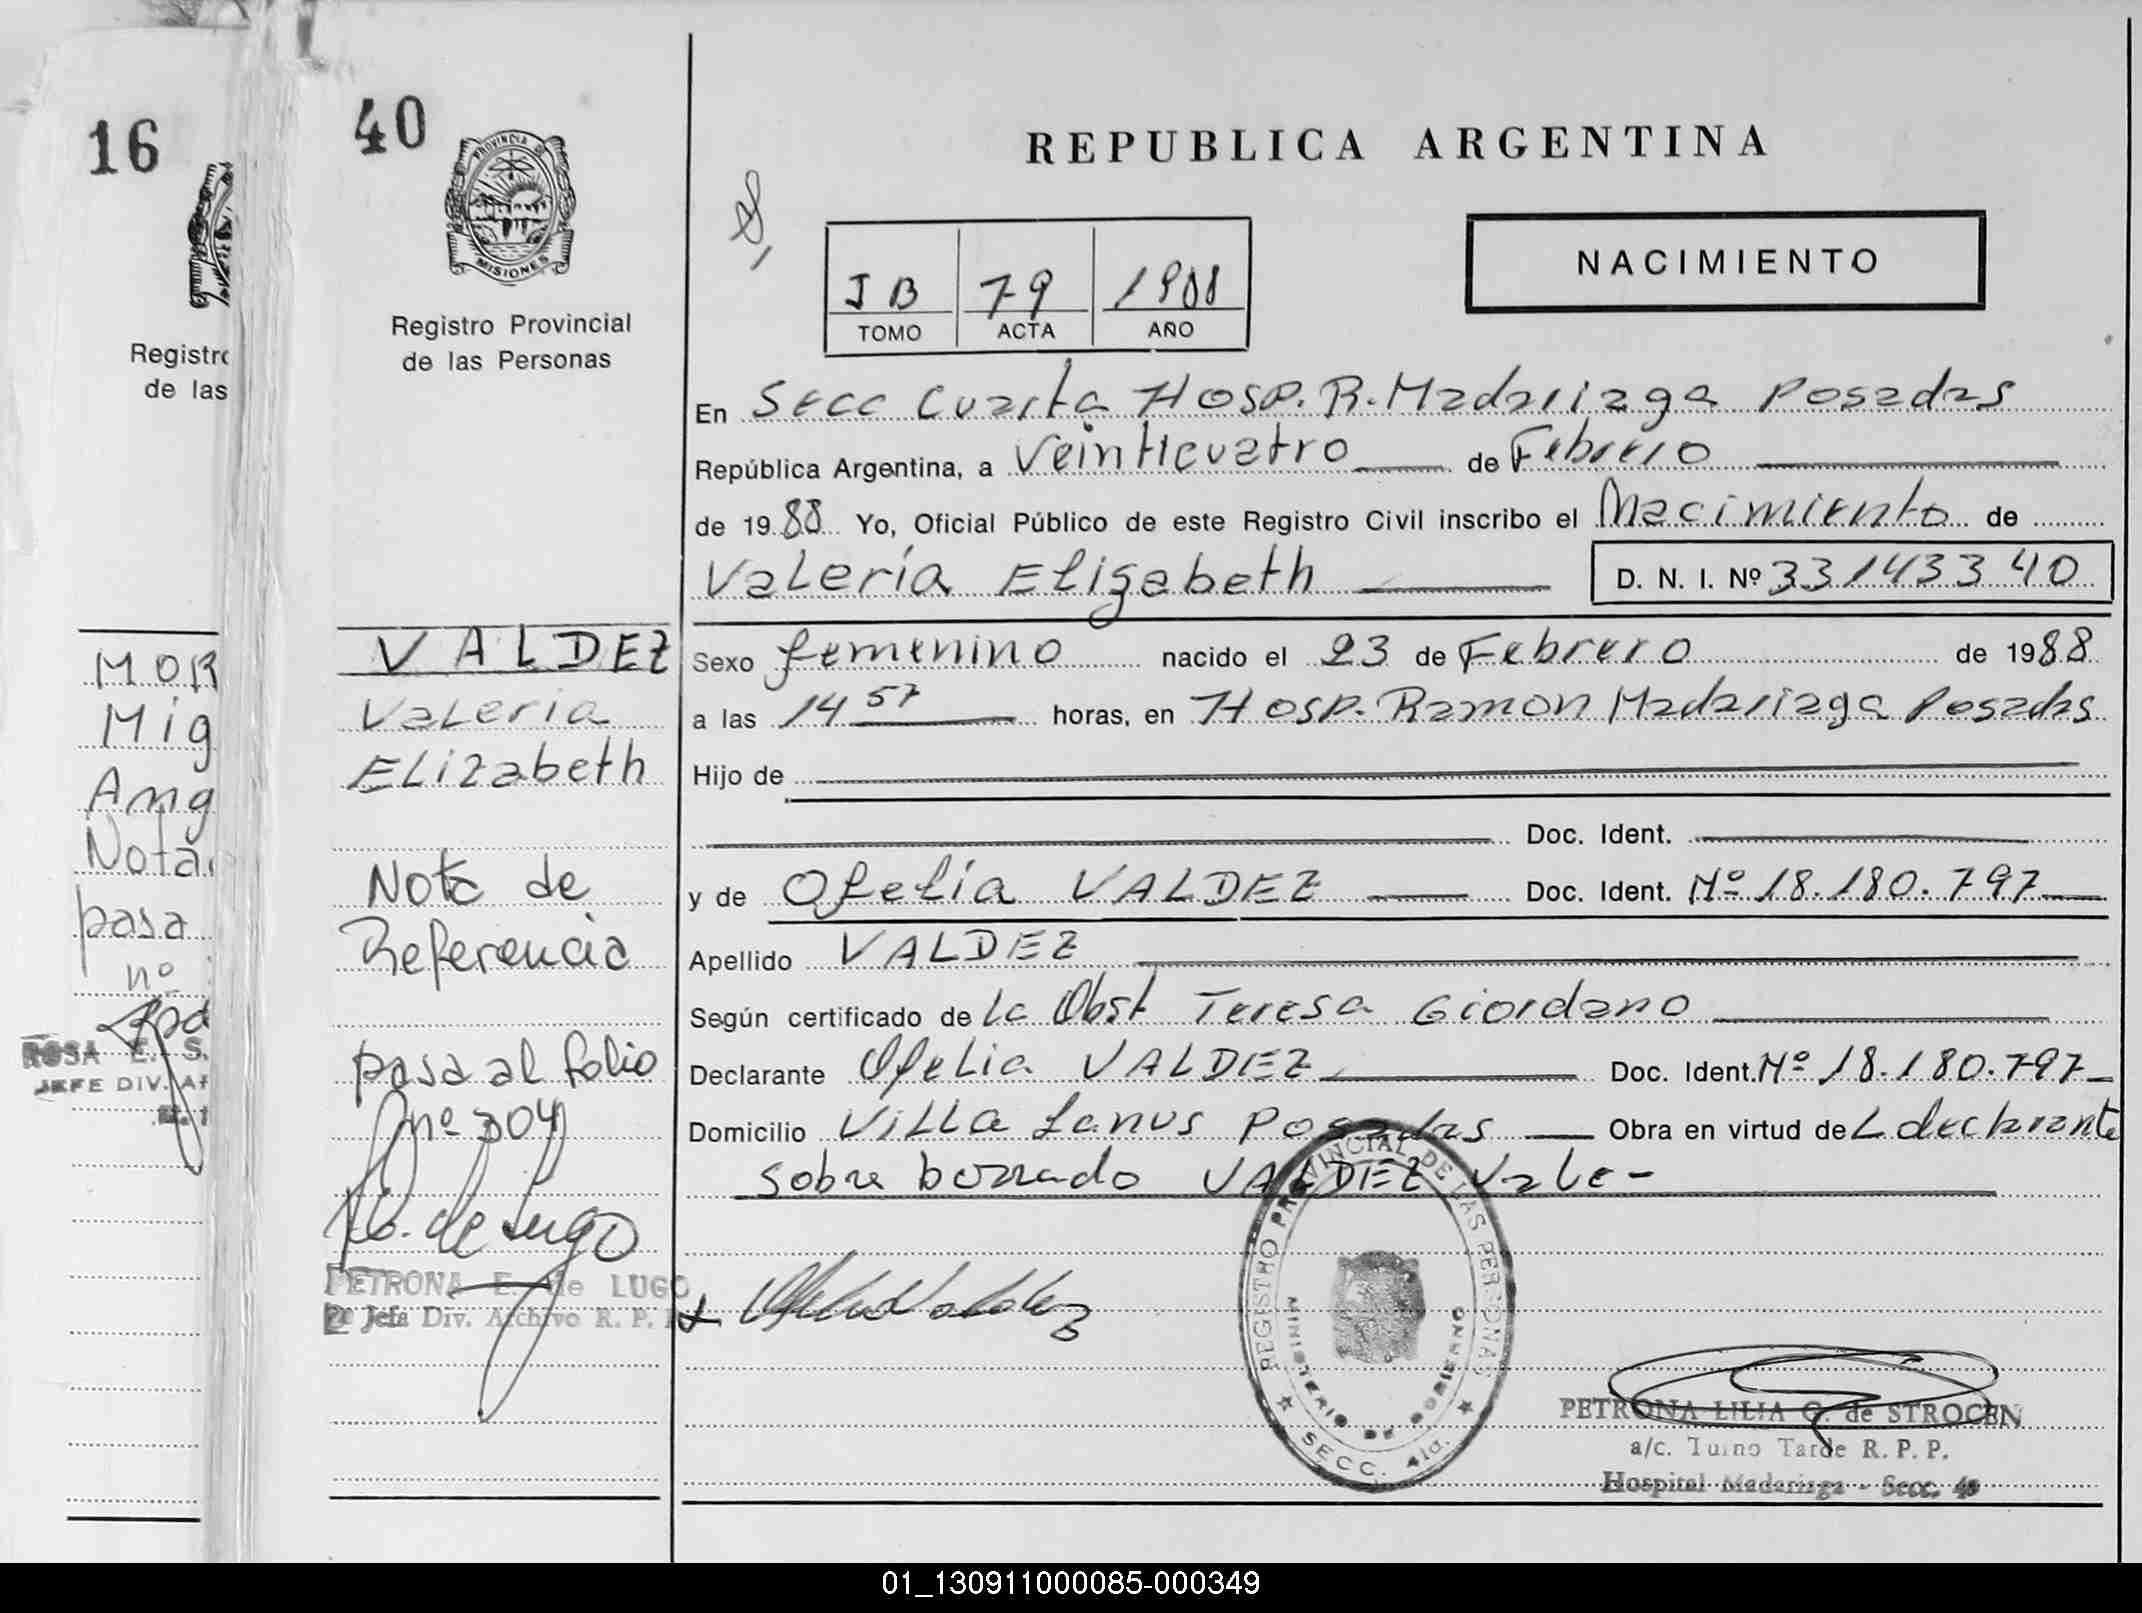 16
Registro
de las
MOR
Mig
Ang
Nota
pasa
nº
ROSA E. S.
JEFE DIV. A
40
PROVINCIA DE
MISIONES
Registro Provincial
de las Personas
VALDEZ
Valeria
Elizabeth
Nota de
Referencia
pasa al folio
nº 304
PETRONA E. de LUGO
2º Jefa Div. Archivo R. P.
REPUBLICA ARGENTINA
NACIMIENTO
I B 79 1988
TOMO ACTA AÑO
En Secc Cuarta Hosp. R. Madariaga Posadas
República Argentina, a Veinticuatro de Febrero
de 1988 Yo, Oficial Público de este Registro Civil inscribo el Nacimiento de
Valeria Elizabeth D. N. I. Nº 33143340
Sexo femenino nacido el 23 de Febrero de 1988
a las 14 57 horas, en Hosp. Ramon Madariaga Posadas
Hijo de
Doc. Ident.
y de Ofelia VALDEZ Doc. Ident. Nº 18.180.797
Apellido VALDEZ
Según certificado de la Obst Teresa Giordano
Declarante Ofelia VALDEZ Doc. Ident. Nº 18.180.797
Domicilio Villa Lanus Posadas Obra en virtud de L declarante
sobre borrado VALDEZ Vale-
Ofelia Valdez
REGISTRO PROVINCIAL DE LAS PERSONAS
MINISTERIO DE GOBIERNO
SECC. 4ta.
PETRONA LILIA G. de STROCEN
a/c. Turno Tarde R. P. P.
Hospital Madariaga - Secc. 4a
01_130911000085-000349